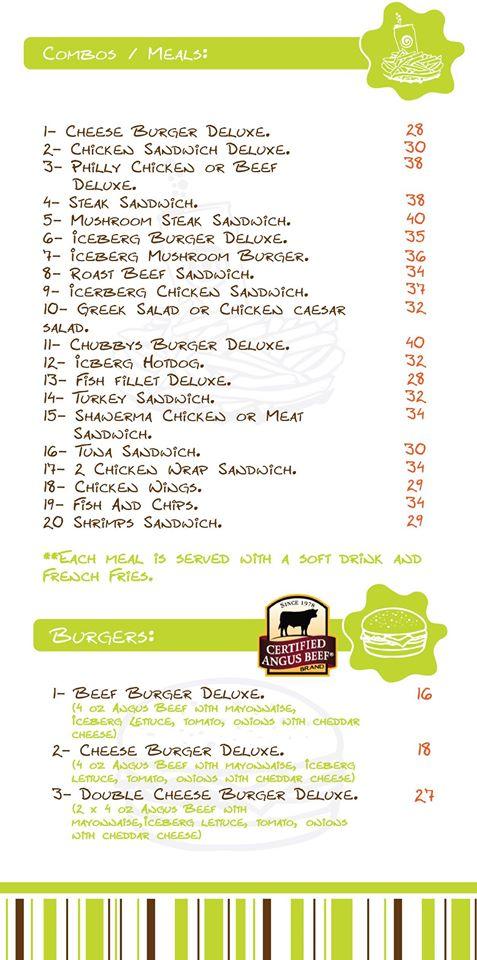 Combos / Meals:
1- Cheese Burger Deluxe. 28
2- Chicken Sandwich Deluxe. 30
3- Philly Chicken or Beef 38
Deluxe.
4- Steak Sandwich. 38
5- Mushroom Steak Sandwich. 40
6- Iceberg Burger Deluxe. 35
7- Iceberg Mushroom Burger. 36
8- Roast Beef Sandwich. 34
9- Icerberg Chicken Sandwich. 37
10- Greek Salad or Chicken caesar 32
salad.
11- Chubbys Burger Deluxe. 40
12- Icberg Hotdog. 32
13- Fish fillet Deluxe. 28
14- Turkey Sandwich. 32
15- Shawerma Chicken or Meat 34
Sandwich.
16- Tuna Sandwich. 30
17- 2 Chicken Wrap Sandwich. 34
18- Chicken Wings. 29
19- Fish And Chips. 34
20 Shrimps Sandwich. 29
**Each meal is served with a soft drink and
French Fries.
SINCE 1978
CERTIFIED
ANGUS BEEF®
BRAND
Burgers:
1- Beef Burger Deluxe. 16
(4 oz Angus Beef with mayonnaise,
Iceberg Lettuce, tomato, onions with cheddar
cheese)
2- Cheese Burger Deluxe. 18
(4 oz Angus Beef with mayonnaise, iceberg
lettuce, tomato, onions with cheddar cheese)
3- Double Cheese Burger Deluxe. 27
(2 x 4 oz Angus Beef with
mayonnaise,iceberg lettuce, tomato, onions
with cheddar cheese)